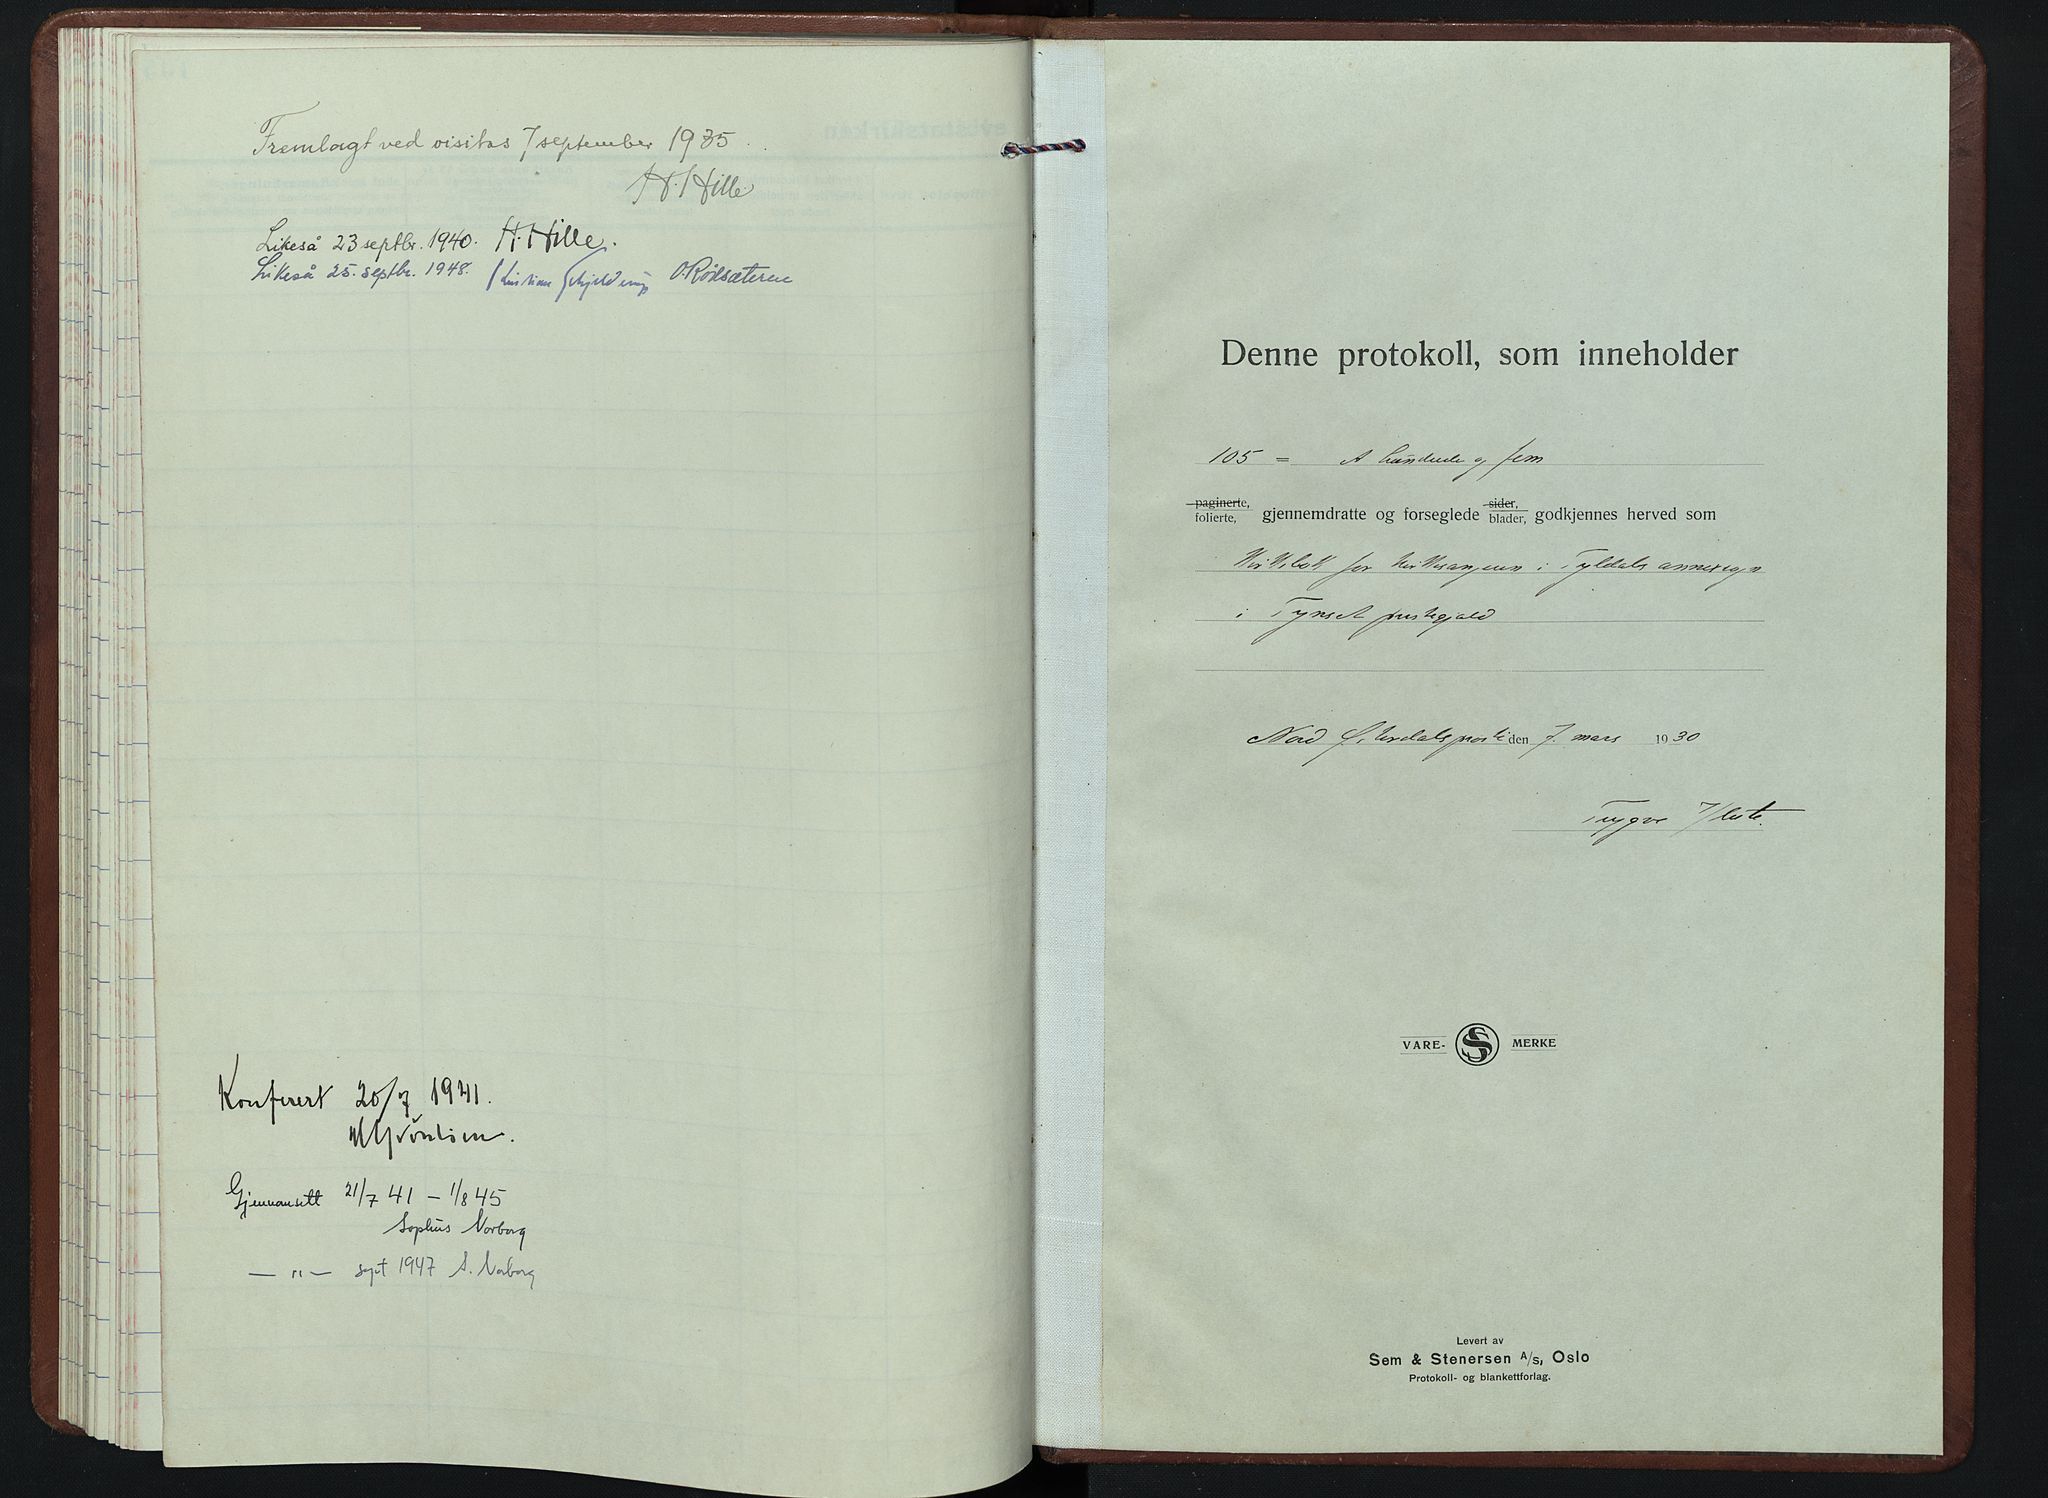 Fremlagt ved visitas 7 september 1935.
H. Hille
Likeså 23 septbr. 1940. H. Hille.
Likeså 25. septbr. 1948. Kristian Schjelderup O. Rödsæteren
Konferert 20/7 1941.
Gjennomsett 21/7 41 – 1/8 45
Sophus Norborg
— " — sept 1947 S. Norborg
Denne protokoll, som inneholder
105 = et hundrede og fem
paginerte, folierte, gjennemdratte og forseglede sider, blader, godkjennes herved som
Kirkebok for kirkesangeren i Tyldal annekssogn
i Tynset prestegjeld
Nord Østerdals prosti den 7. mars 1930
Trygve
VARE- SS MERKE
Levert av
Sem & Stenersen A/S, Oslo
Protokoll- og blankettforlag.